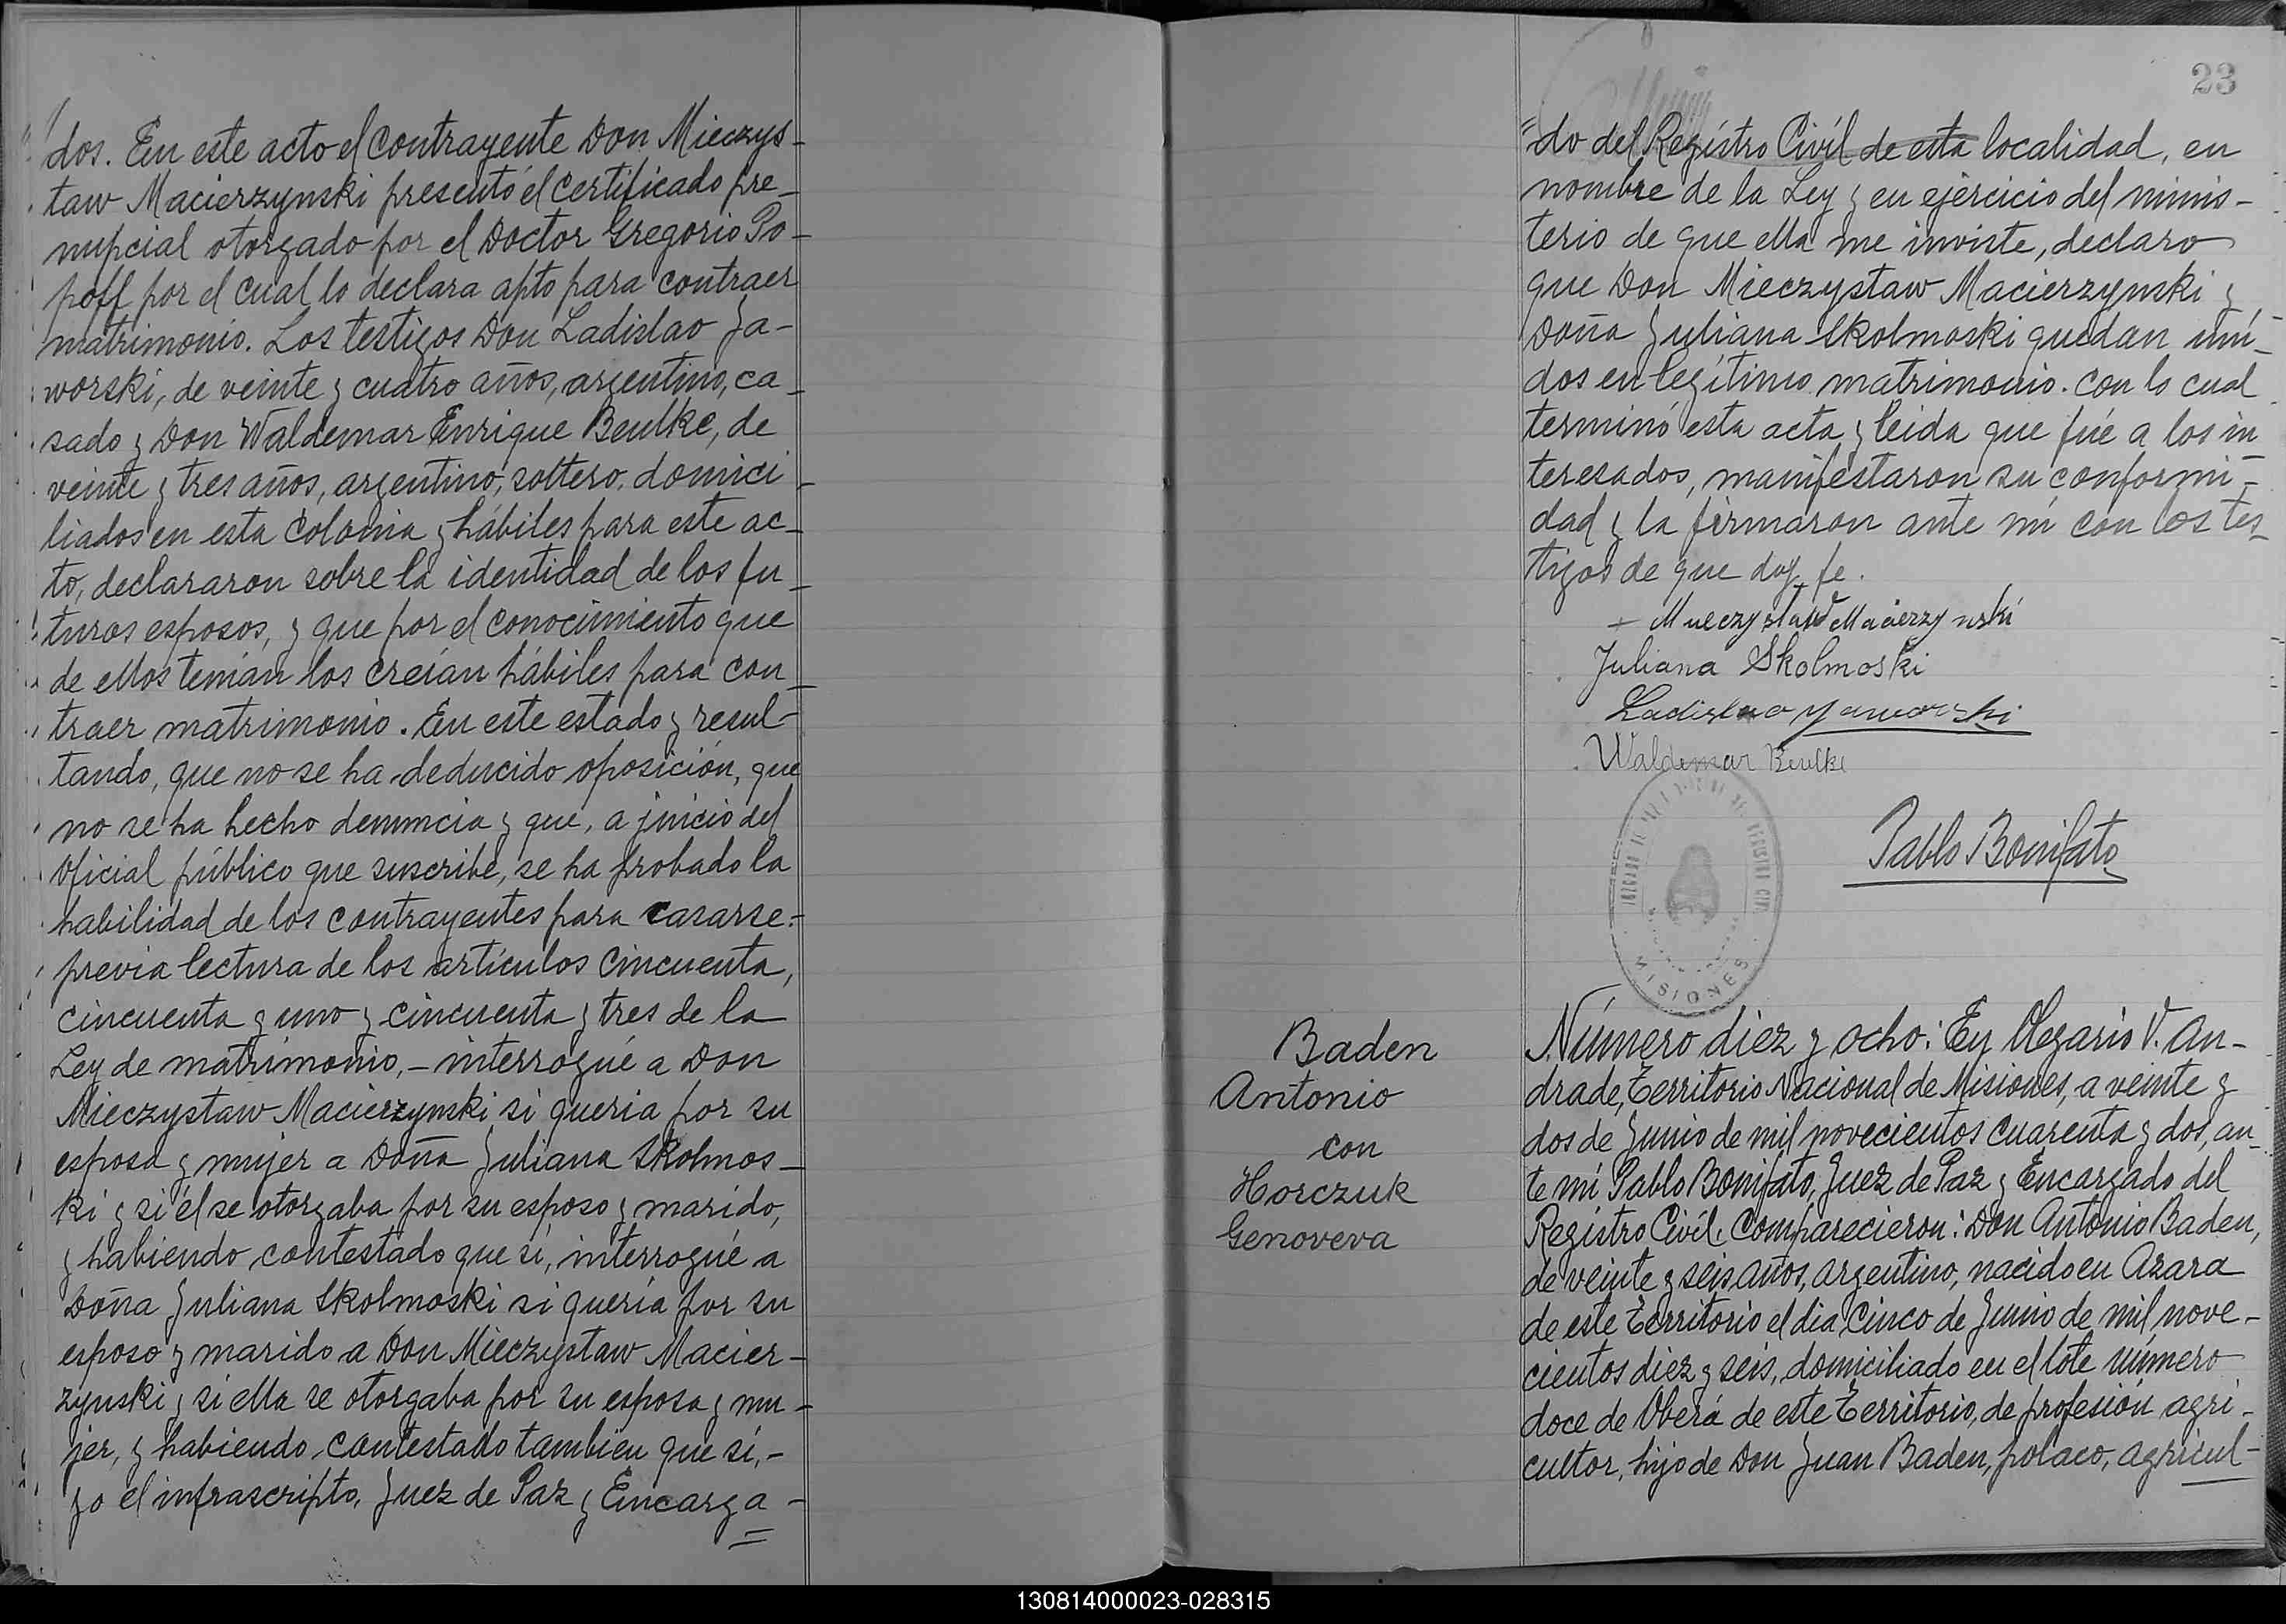 dos. En este acto el contrayente Don Mieczys-
taw Macierzynski presentó el certificado pre-
nupcial otorgado por el Doctor Gregorio Po-
poff por el cual lo declara apto para contraer
matrimonio. Los testigos Don Ladislao Ja-
worski, de veinte y cuatro años, argentino, ca-
sado y Don Waldemar Enrique Beulke, de
veinte y tres años, argentino, soltero, domici-
liados en esta Colonia y hábiles para este ac-
to, declararon sobre la identidad de los fu-
turos esposos, y que por el conocimiento que
de ellos tenían los creían hábiles para con-
traer matrimonio. En este estado y resul-
tando, que no se ha deducido oposición, que
no se ha hecho denuncia y que, a juicio del
Oficial público que suscribe, se ha probado la
habilidad de los contrayentes para casarse:
previa lectura de los artículos cincuenta,
cincuenta y uno y cincuenta y tres de la
Ley de matrimonio, - interrogué a Don
Mieczystaw Macierzynski si quería por su
esposa y mujer a Doña Juliana Skolmos-
ki y si él se otorgaba por su esposo y marido,
y habiendo contestado que sí, interrogué a
Doña Juliana Skolmoski si quería por su
esposo y marido a Don Mieczystaw Macier-
zynski y si ella se otorgaba por su esposa y mu-
jer, y habiendo contestado tambien que sí, -
yo el infrascripto, Juez de Paz y Encarga-
23
do del Registro Civil de esta localidad, en
nombre de la Ley y en ejercicio del minis-
terio de que ella me inviste, declaro
que Don Mieczystaw Macierzynski y
Doña Juliana Skolmoski quedan uni-
dos en legítimo matrimonio. Con lo cual
terminó esta acta y leida que fué a los in
teresados, manifestaron su conformi-
dad y la firmaron ante mí con los tes-
tigos de que doy fe.
Mieczystaw Macierzynski
Juliana Skolmoski
Ladislao Yaworski
Waldemar Beulke
Pablo Bonifato
MISIONES
Baden
Antonio
con
Horczuk
Genoveva
Número diez y ocho: En Olegario V. An-
drade, Territorio Nacional de Misiones, a veinte y
dos de Junio de mil novecientos cuarenta y dos, an-
te mí Pablo Bonifato, Juez de Paz y Encargado del
Registro Civil. Comparecieron: Don Antonio Baden,
de veinte y seis años, argentino, nacido en Azara
de este Territorio el dia cinco de Junio de mil nove-
cientos diez y seis, domiciliado en el lote número
doce de Oberá de este Territorio, de profesión agri-
cultor, hijo de Don Juan Baden, polaco, agricul-
130814000023-028315